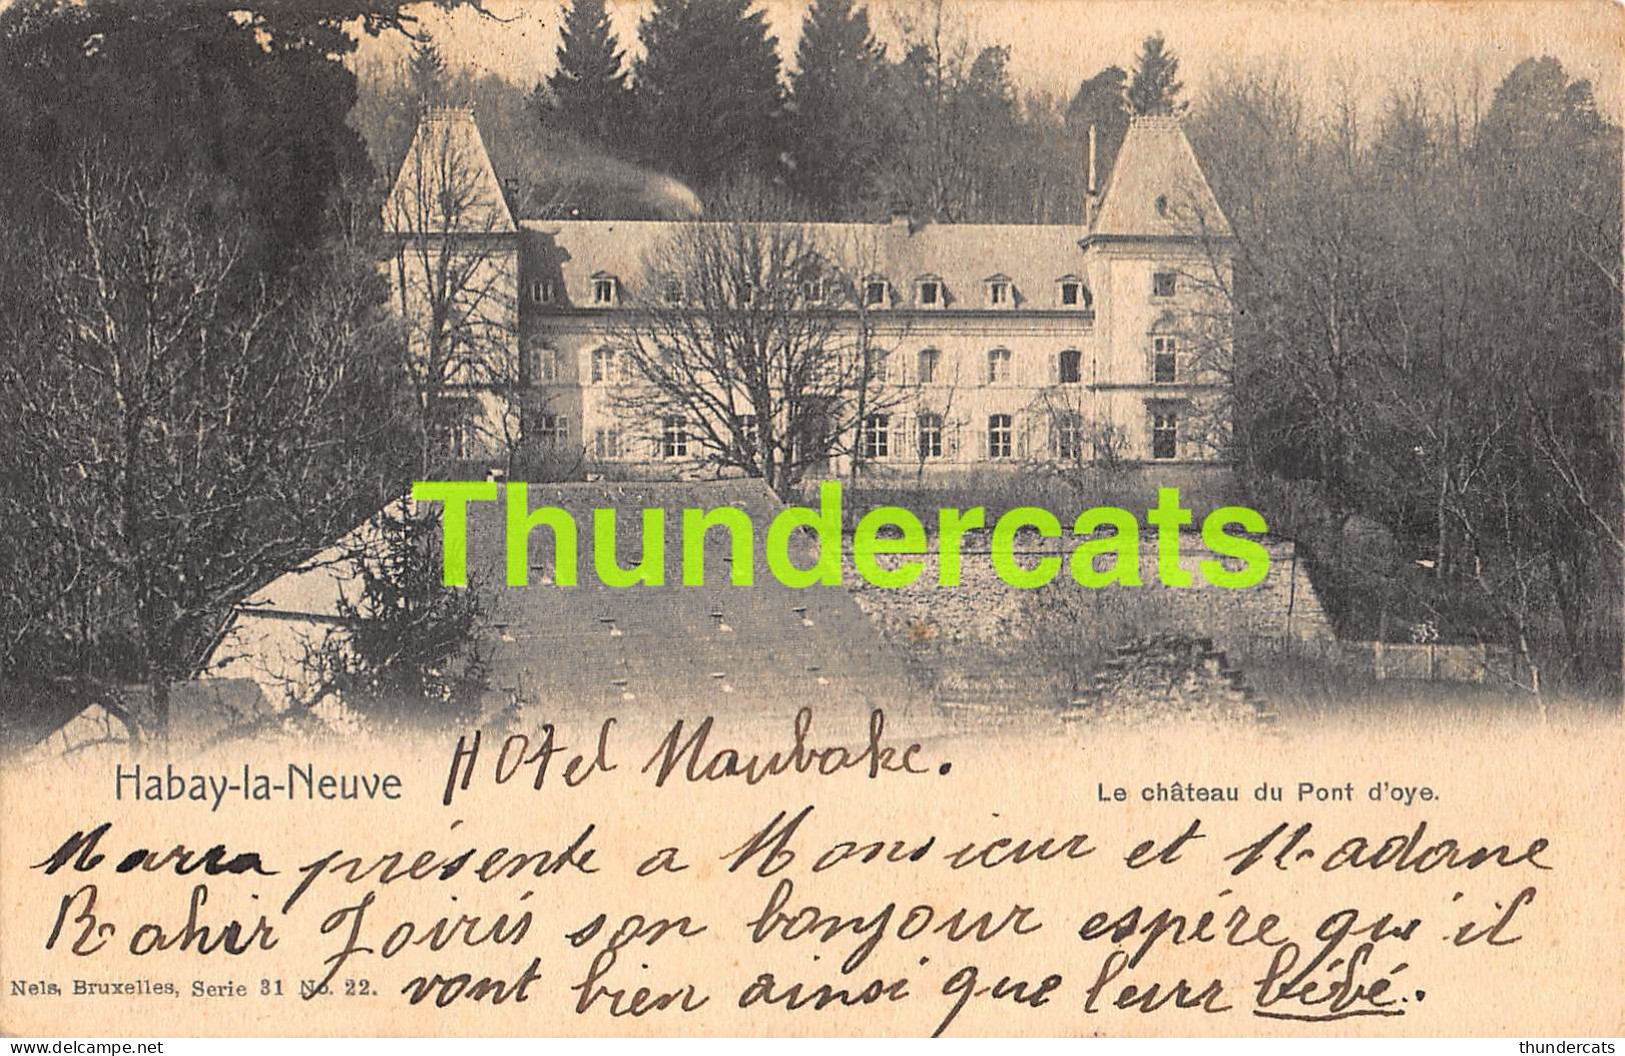 Thundercats
Hôtel
Habay-la-Neuve
Le château du Pont d'oye.
présente a Monsieur et Madame
son bonjour espére qu'il
Nels, Bruxelles, Serie 31 No. 22.
vont bien ainsi que leur bébé.
delcampe.net
thundercats